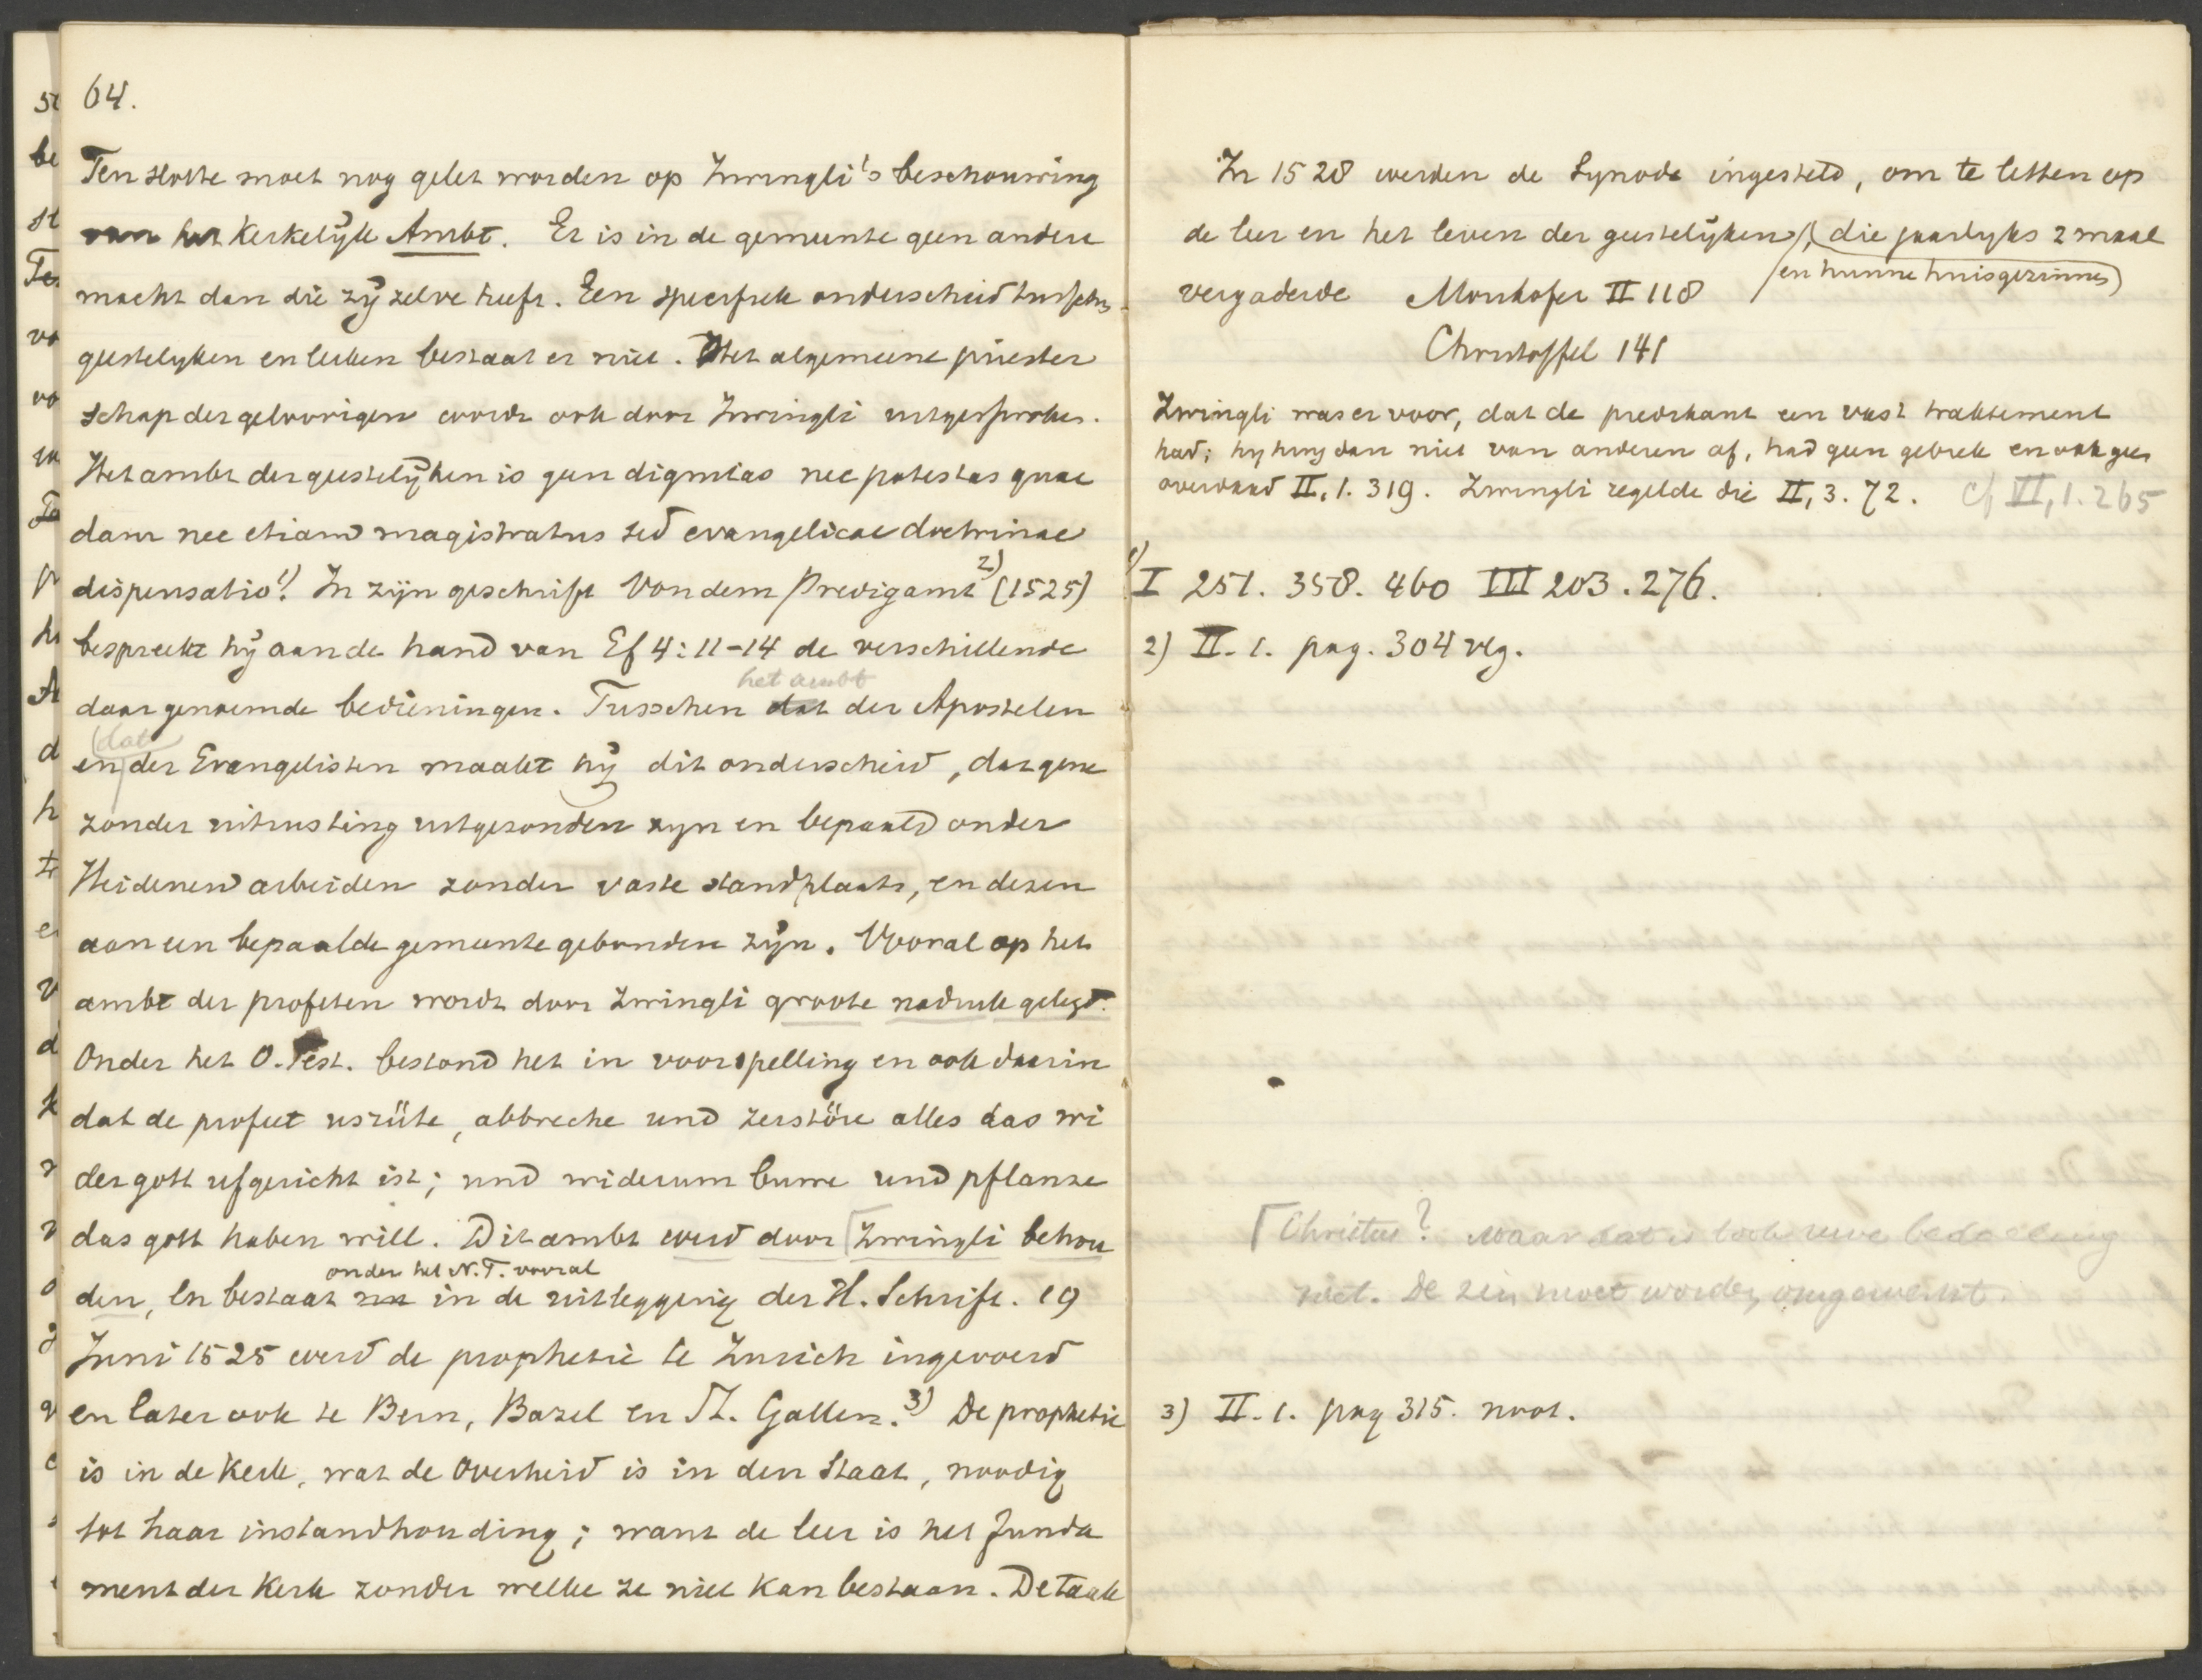 64.
Ten slotte moet nog gelet worden op Zwingli's beschouwing
van het Kerkelijk Ambt. Er is in de gemeente geen andere
macht dan die zij zelve heeft. Een specifiek onderscheid tusschen
geestelyken en leeken bestaat er niet. Het algemeene priester
schap der geloovigen wordt ook door Zwingli uitgesproken.
Het ambt der geestelijken is geen dignitas nec potestas quae
dam nec etiam magistratus sed evangelicae doctrinae
dispensatio 1). In zijn geschrift Von dem Predigamt 2) (1525)
bespreekt hij aan de hand van Ef 4:11-14 de verschillende
het ambt
daar genoemde bedieningen. Tusschen dat der Apostelen
dat
en der Evangelisten maakt hij dit onderscheid, dat gene
zonder uitrusting uitgezonden zyn en bepaald onder
Heidenen arbeiden zonder vaste standplaats, en dezen
aan een bepaalde gemeente gebonden zijn. Vooral op het
ambt der profeten wordt door Zwingli groote nadruk gelegd.
Onder het O. Test. bestond het in voorspelling en ook daarin
dat de profeet usrüte, abbreche und zerstöre alles das wi
der gott ufgericht ist; und widerum buwe und pflanze
das gott haben will. Dit ambt werd door Zwingli behou
onder het N.T. vooral
den, en bestaat nu in de uitlegging der H. Schrift. 19
Juni 1525 werd de prophetie te Zurich ingevoerd
en later ook te Bern, Bazel en St. Gallen. 3) De prophetie
is in de Kerk, wat de Overheid is in den Staat, noodig
tot haar instandhouding; want de leer is het funda
ment der Kerk zonder welke ze niet kan bestaan. De taak
In 1528 werden de Synode ingesteld, om te letten op
de leer en het leven der geestelijken, die jaarlyks 2 maal
(en hunne huisgezinnen)
vergaderde Morikofer II 118
Christoffel 141
Zwingli was er voor, dat de predikant een vast traktement
had; hy hing dan niet van anderen af, had geen gebrek en ook geen
overvloed II, 1. 319. Zwingli regelde die II, 3. 72. cf VI, 1. 265
1) I 251. 358. 460 III 203. 276.
2) II. 1. pag. 304 vlg.
Christus? Maar dat is toch uwe bedoeling
niet. De zin moet worden omgewerkt.
3) II. 1. pag 315. noot.